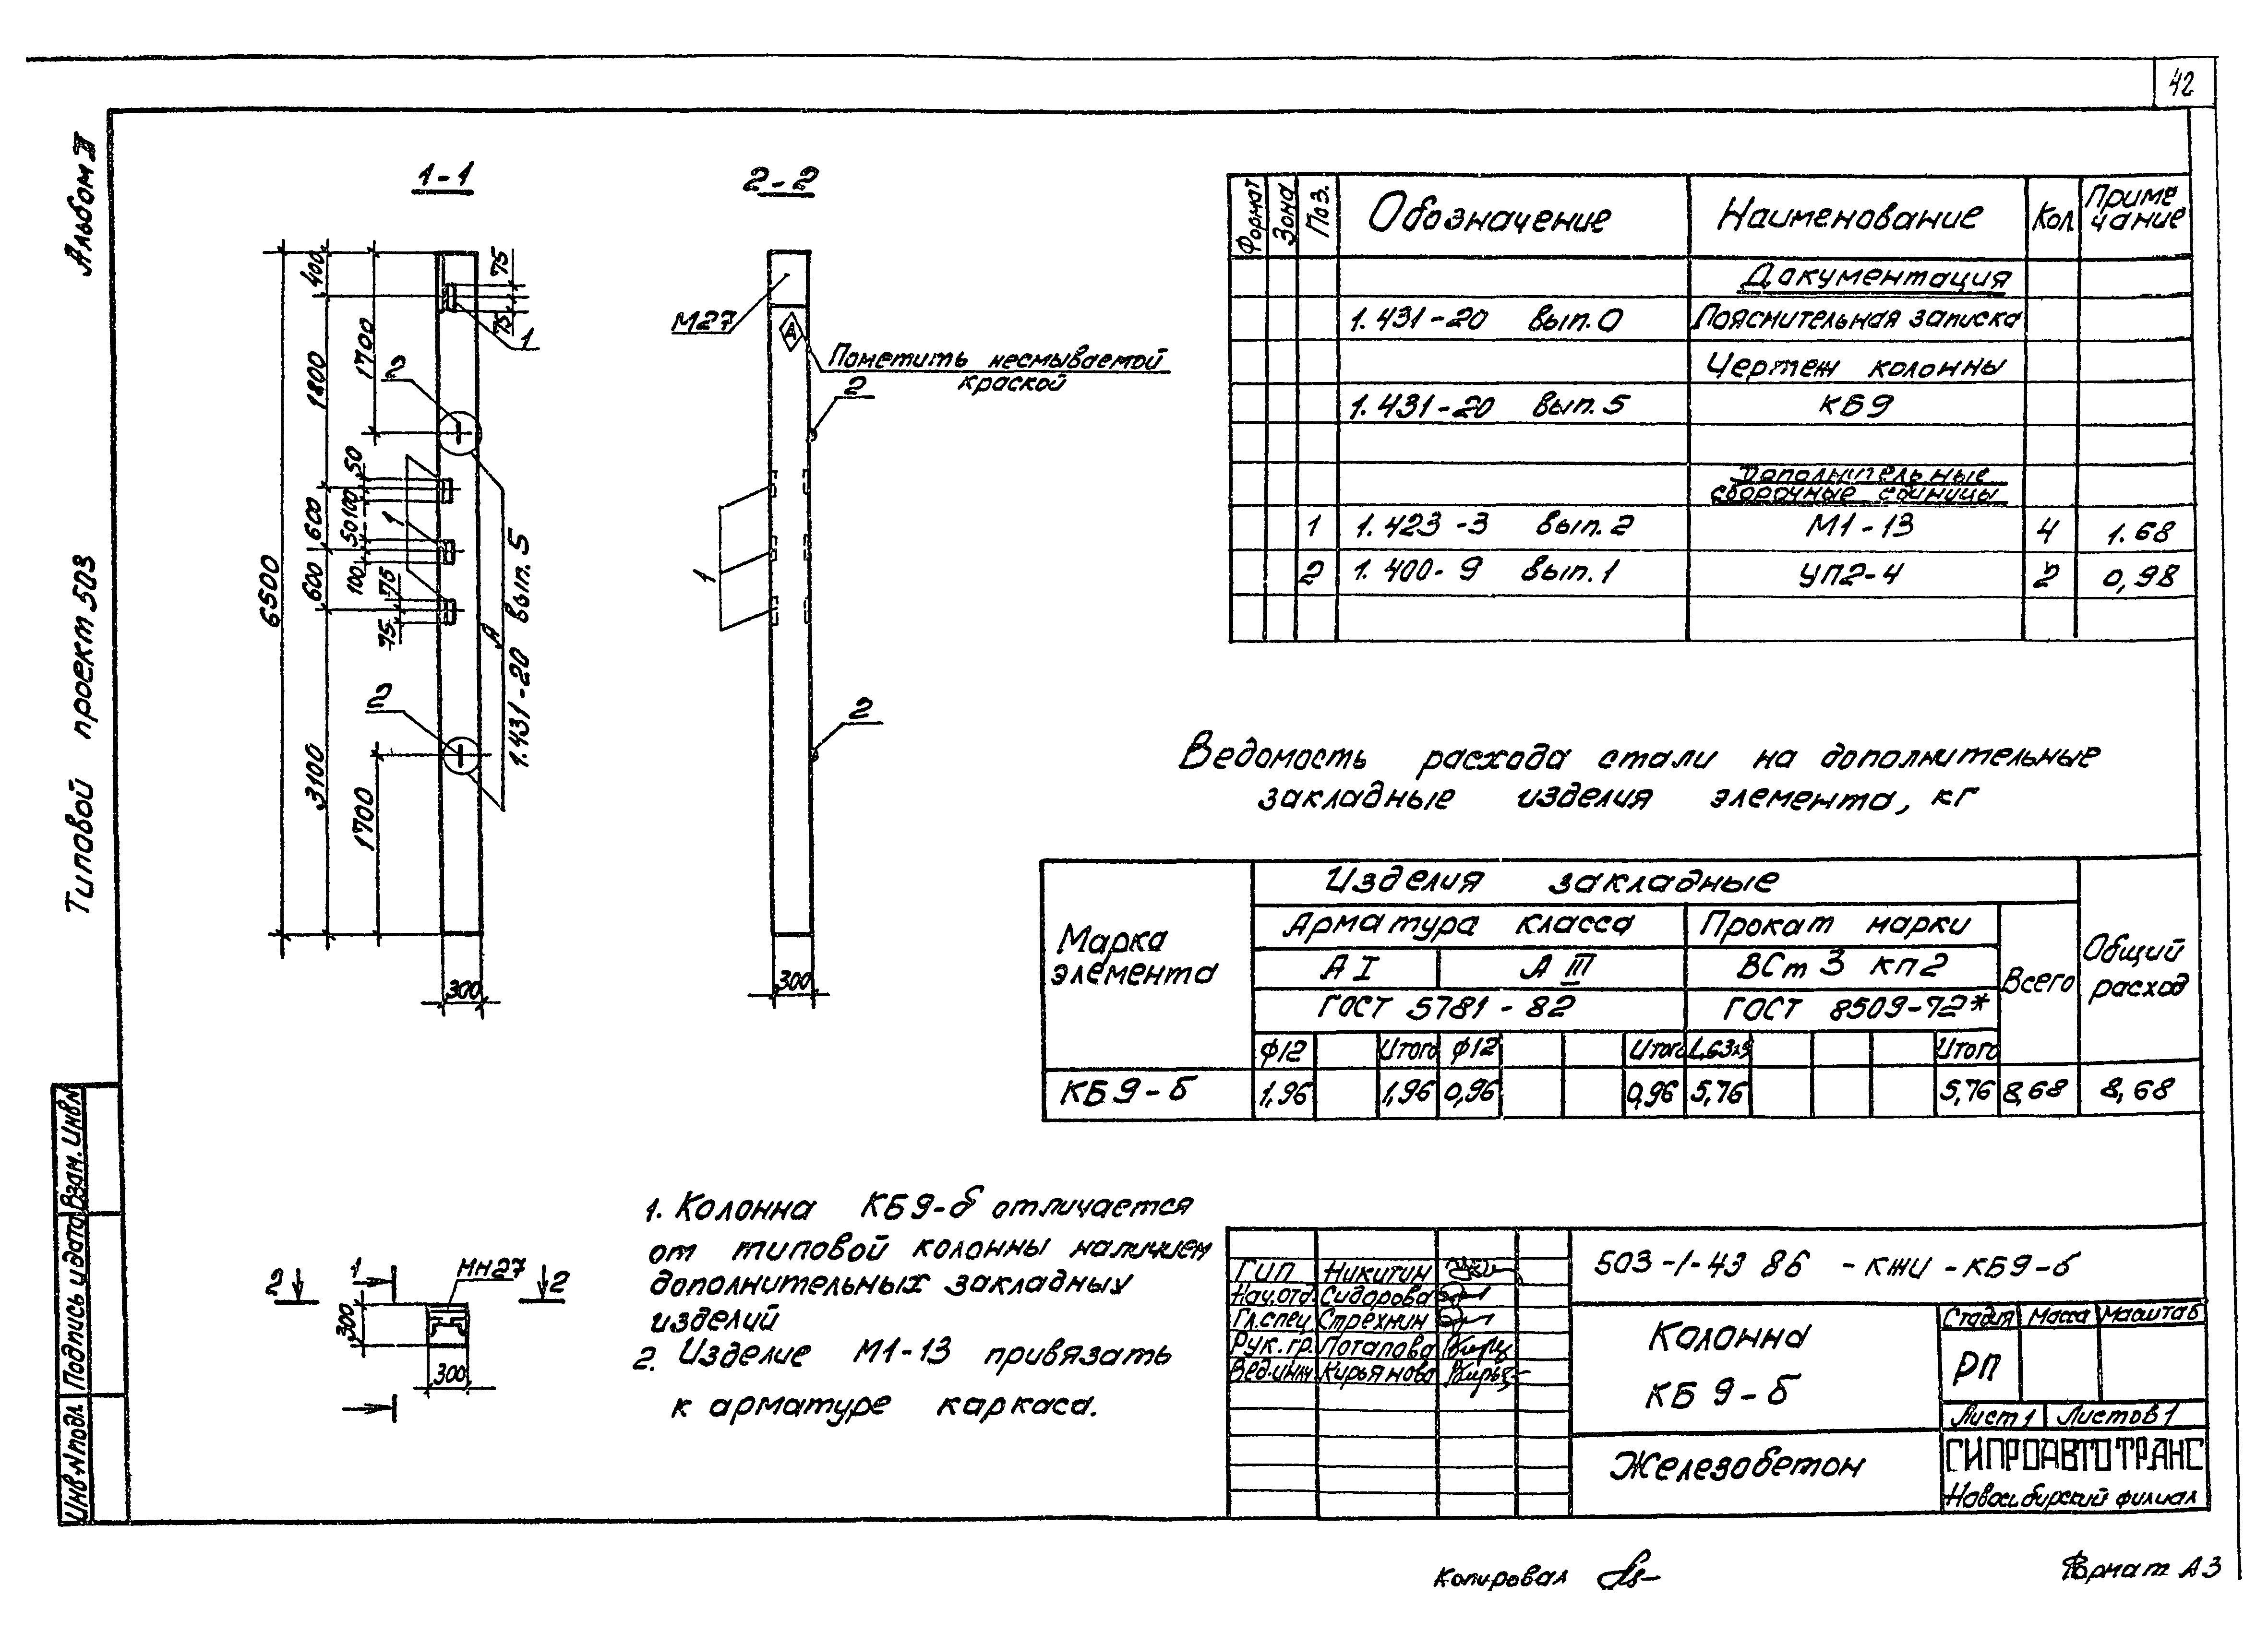 42
Альбом II
Типовой проект 503
Взам. Инв.№
Подпись и дата
Инв.№ подл.
1-1
2-2
400
1800
600
600
3100
6500
1700
1700
50
100
50
100
75
75
75
75
1
2
1
2
А
1.431-20 вып. 5
300
М27
А
Пометить несмываемой
краской
2
1
2
300
Формат
Зона
Поз.
Обозначение
Наименование
Кол.
Приме
чание
Документация
1.431-20 вып. 0 Пояснительная записка
Чертеж колонны
1.431-20 вып. 5 КБ9
Дополнительные
сборочные единицы
1 1.423-3 вып. 2 М1-13 4 1.68
2 1.400-9 вып. 1 УП2-4 2 0,98
Ведомость расхода стали на дополнительные
закладные изделия элемента, кг
Марка
элемента
Изделия закладные
Арматура класса Прокат марки
А I А III ВСт 3 кп2
ГОСТ 5781-82 ГОСТ 8509-72*
Всего
Общий
расход
ф12 Итого ф12 Итого Итого
КБ9-б 1,96 1,96 0,96 0,96 5,76 5,76 8,68 8,68
1. Колонна КБ9-б отличается
от типовой колонны наличием
дополнительных закладных
изделий
2. Изделие М1-13 привязать
к арматуре каркаса.
2 1 МН27 2
300
300
ГИП Никитин
Нач.отд. Сидорова
Гл.спец Стрехнин
Рук.гр. Потапова
Вед.инж Кирьянова
503-1-43 86 -кжи-КБ9-б
Колонна
КБ 9-б
Стадия Масса Масштаб
РП
Лист 1 Листов 1
Железобетон
ГИПРОАВТОТРАНС
Новосибирский филиал
Копировал
Формат А3